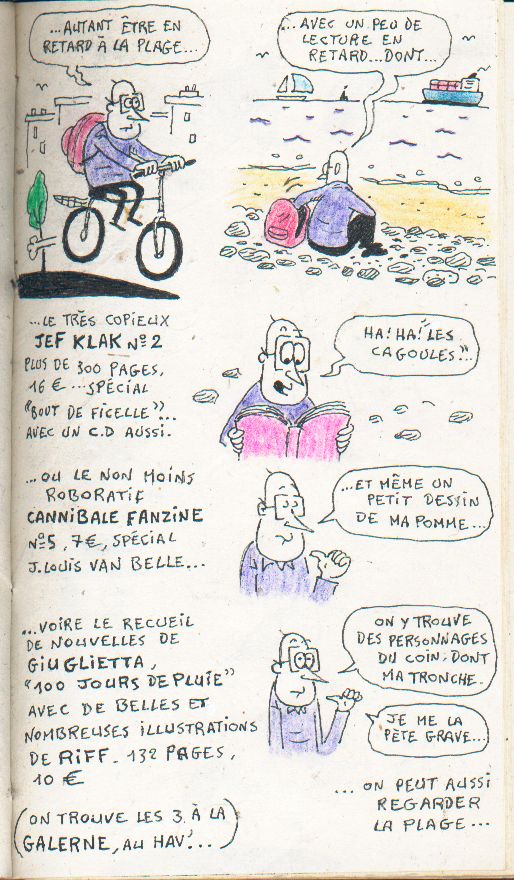 ...AUTANT ÊTRE EN
RETARD À LA PLAGE...
...AVEC UN PEU DE
LECTURE EN
RETARD...DONT...
...LE TRÈS COPIEUX
JEF KLAK Nº2
PLUS DE 300 PAGES,
16 € ...SPÉCIAL
"BOUT DE FICELLE"...
AVEC UN C.D AUSSI.
HA! HA! "LES
CAGOULES"...
...OU LE NON MOINS
ROBORATIF
CANNIBALE FANZINE
Nº5, 7€, SPÉCIAL
J.LOUIS VAN BELLE...
...ET MÊME UN
PETIT DESSIN
DE MA POMME...
...VOIRE LE RECUEIL
DE NOUVELLES DE
GIUGLIETTA,
"100 JOURS DE PLUIE"
AVEC DE BELLES ET
NOMBREUSES ILLUSTRATIONS
DE RIFF. 132 PAGES,
10 €
ON Y TROUVE
DES PERSONNAGES
DU COIN, DONT
MA TRONCHE.
JE ME LA
PÈTE GRAVE...
(ON TROUVE LES 3 À LA
GALERNE, AU HAV'...)
... ON PEUT AUSSI
REGARDER
LA PLAGE...